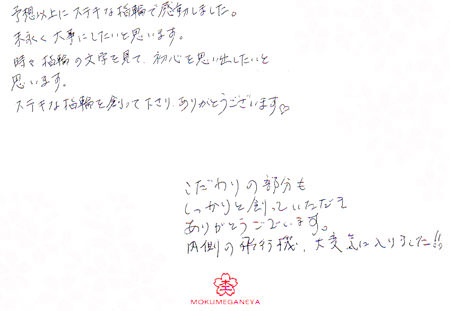 予想以上にステキな指輪で感動しました。
末永く大事にしたいと思います。
時々指輪の文字を見て、初心を思い出したいと
思います。
ステキな指輪を創って下さり、ありがとうございます♡
こだわりの部分も
しっかりと創っていただき
ありがとうございます。
内側の飛行機、大変気に入りました!!
MOKUMEGANEYA